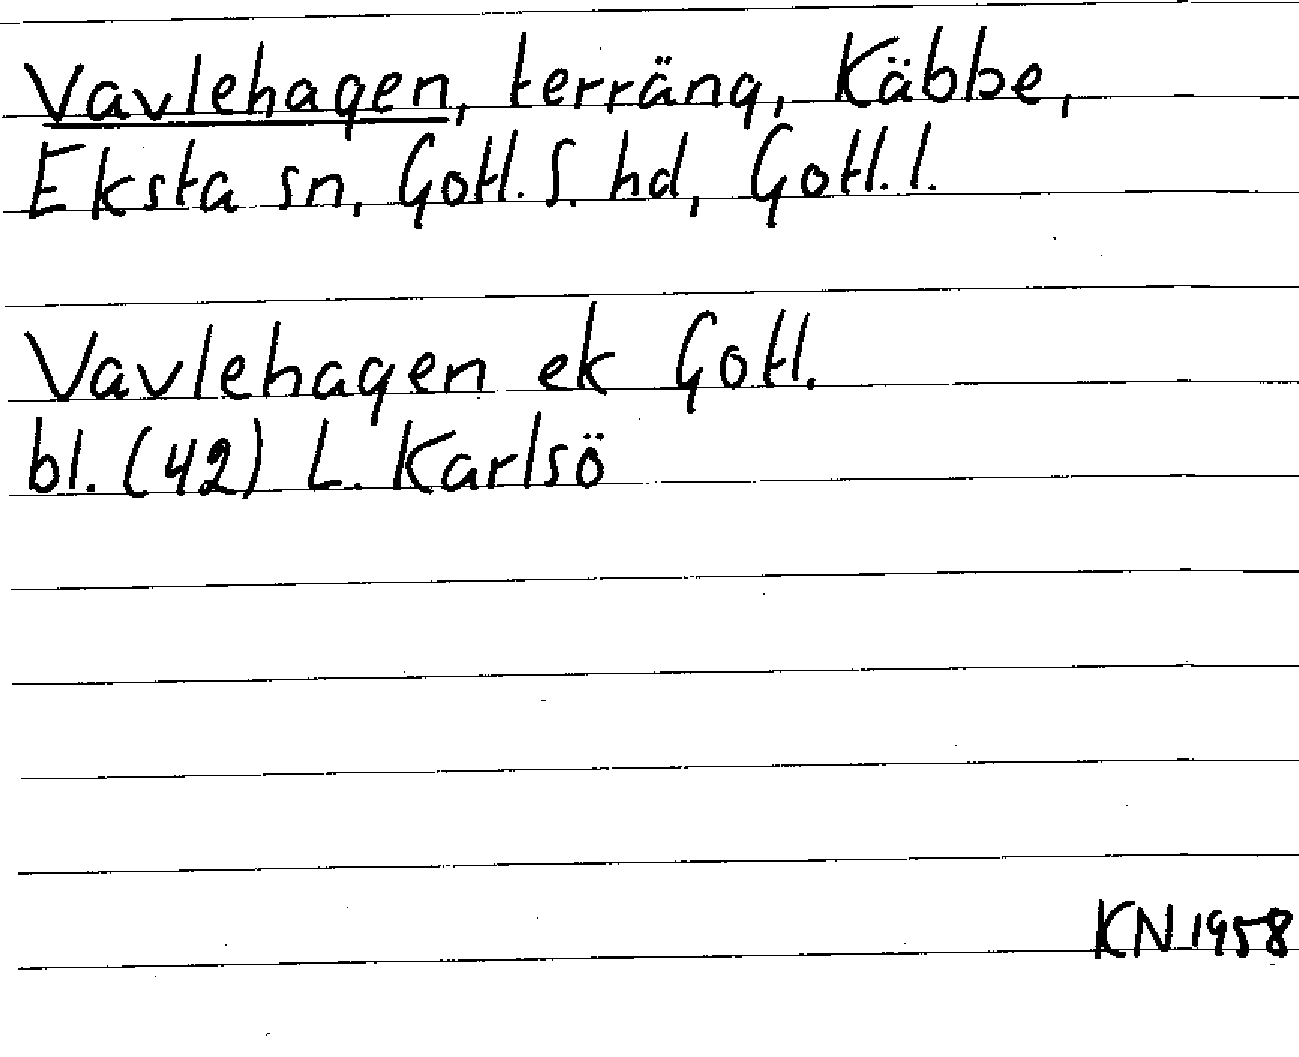 Vavlehagen, terräng, Käbbe,
Eksta sn, Gotl. S. hd, Gotl. l.
Vavlehagen ek Gotl.
bl. (42) L. Karlsö
KN 1958